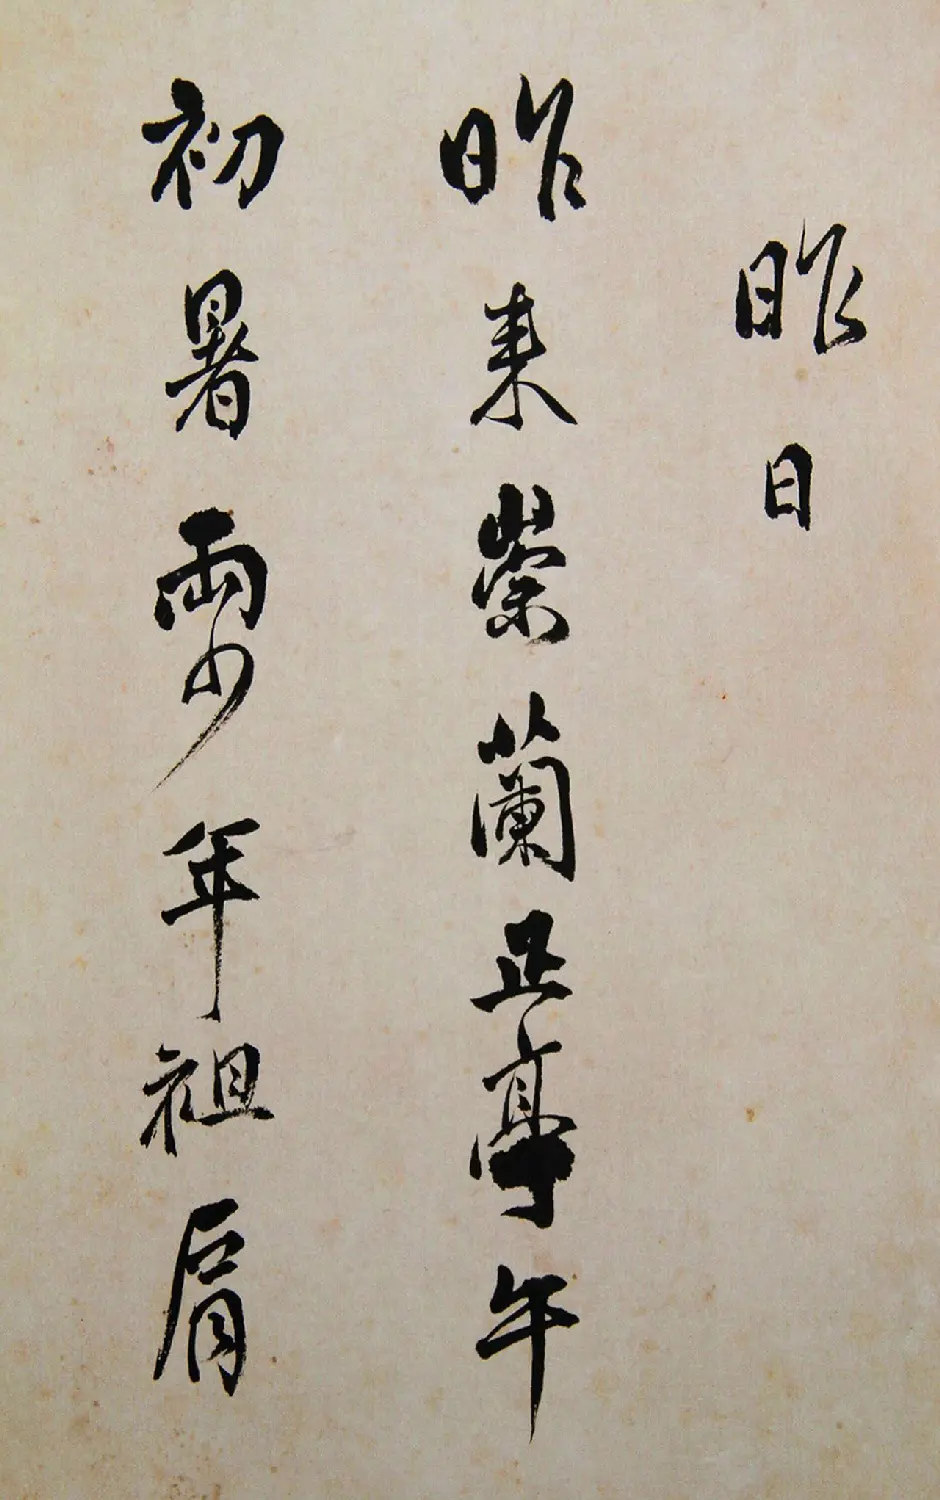 昨日
昨来崇蘭正亭午
初暑兩少年袒肩